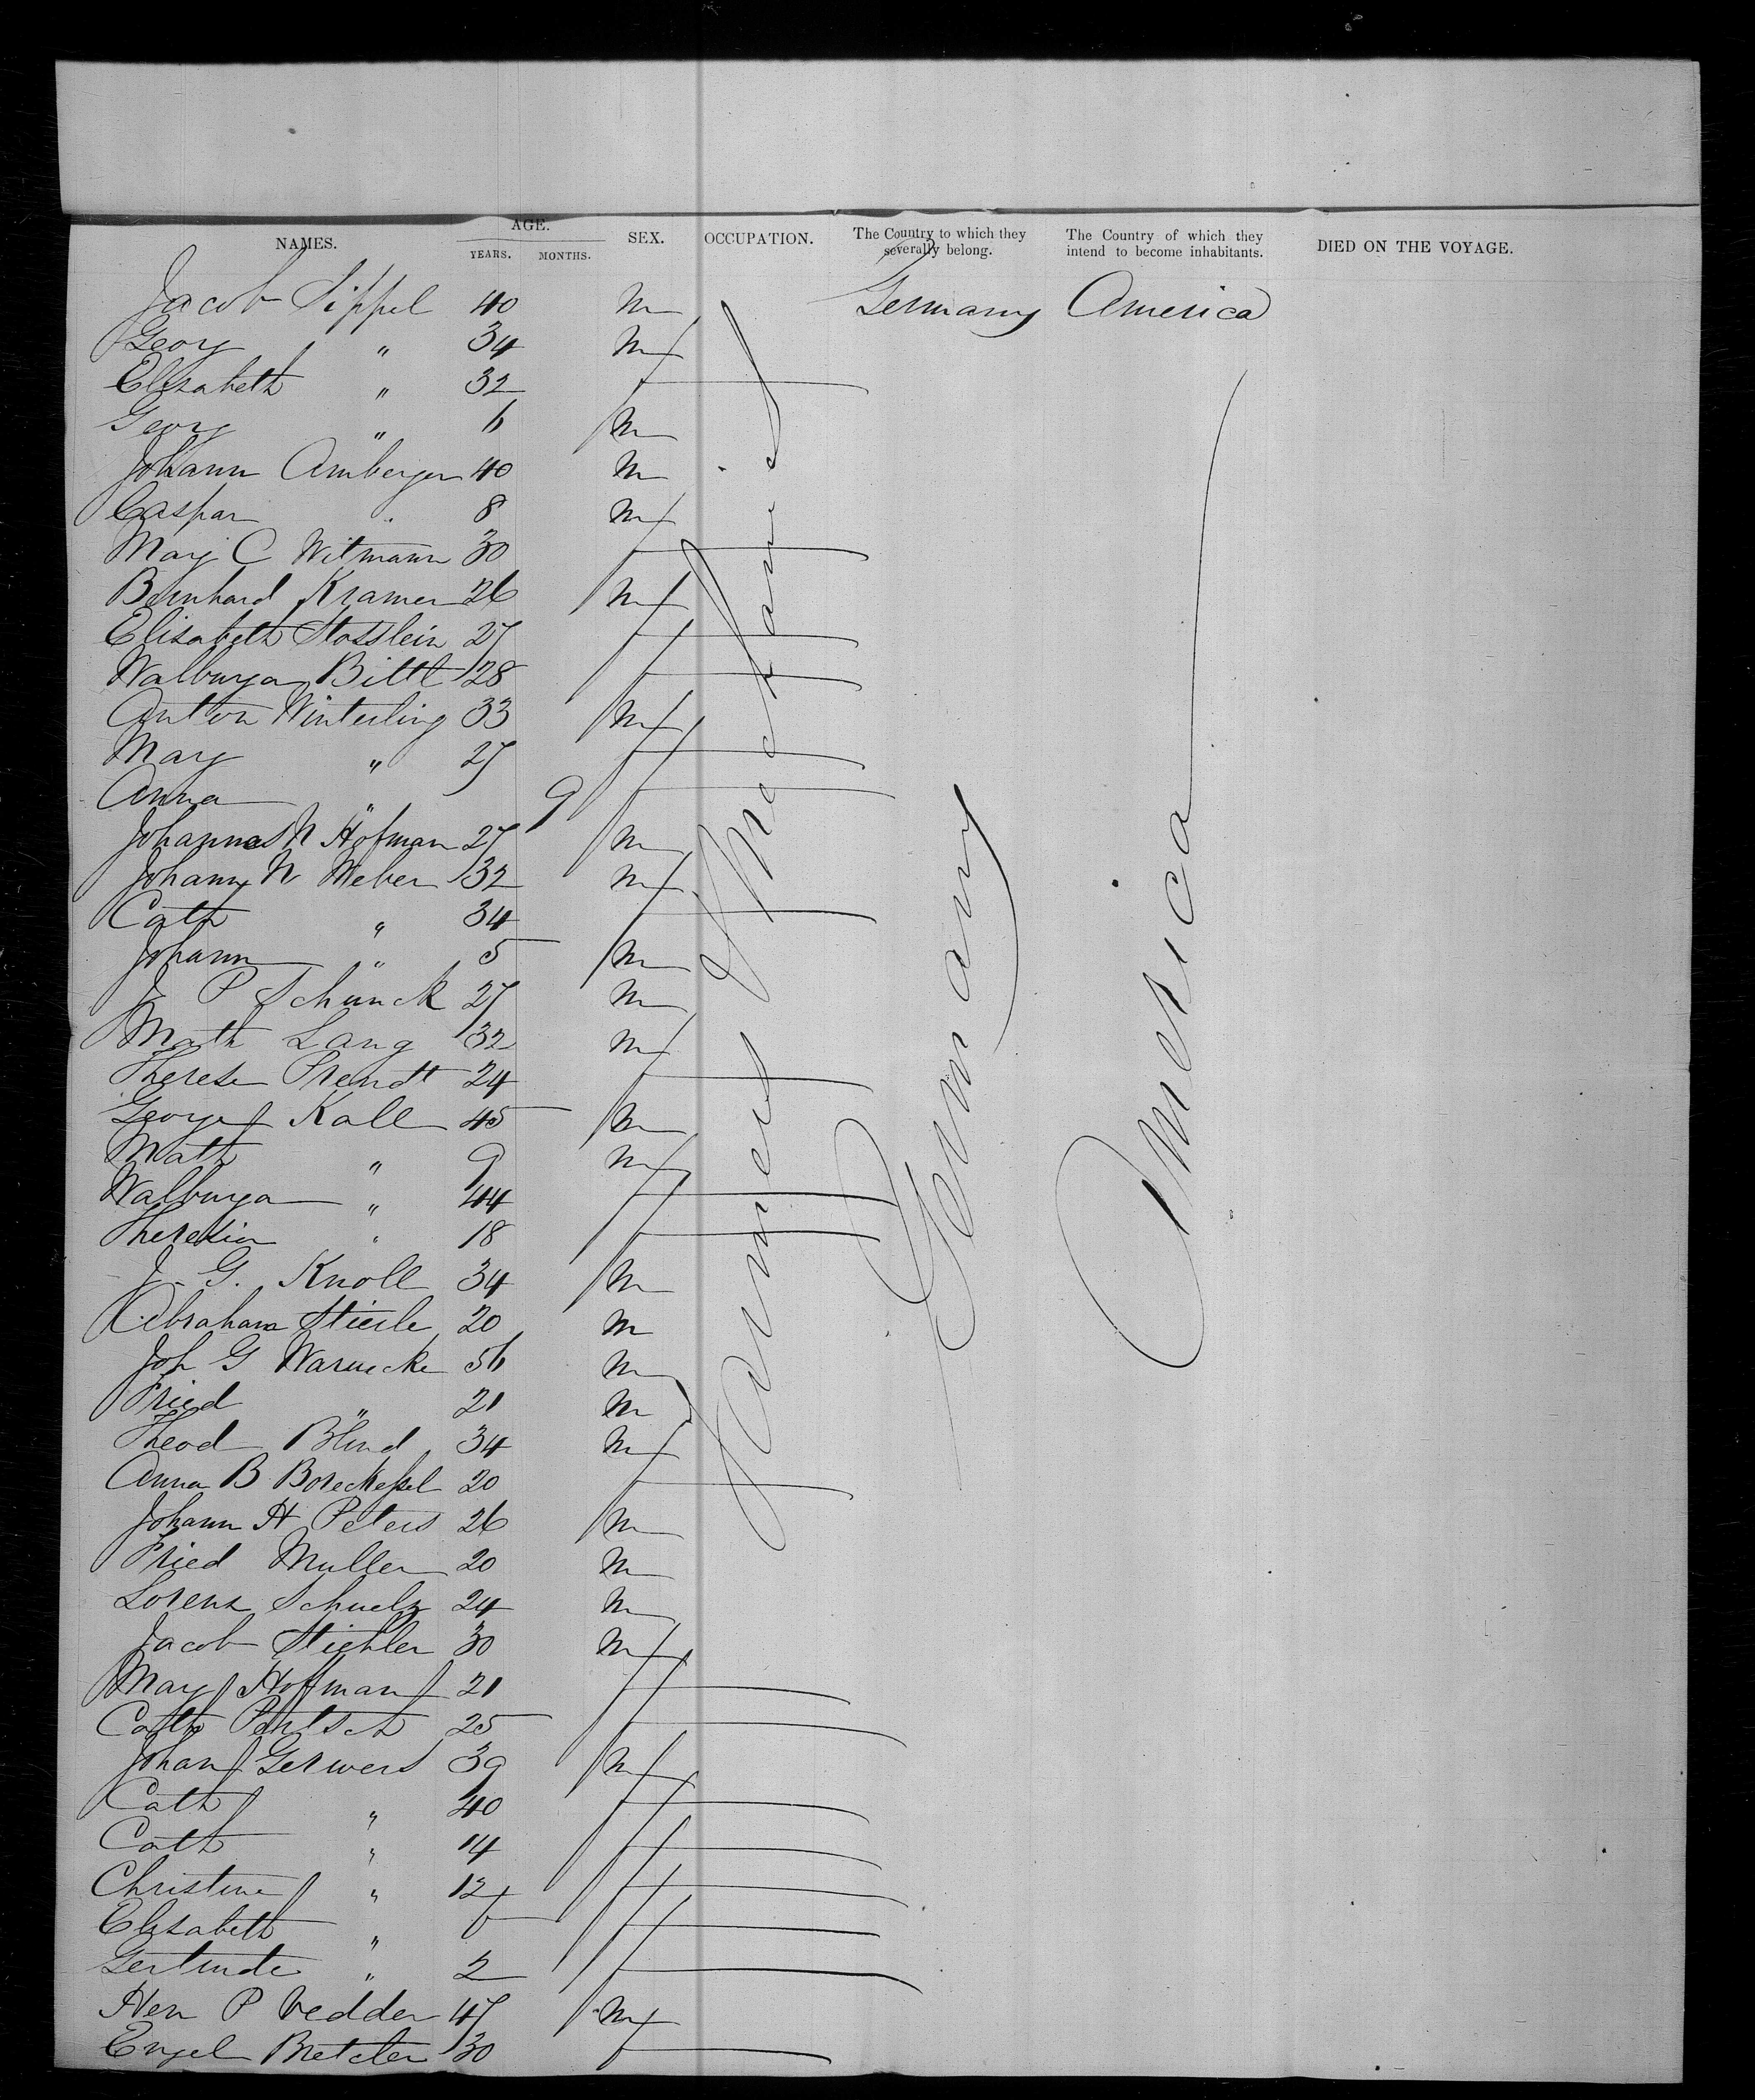 NAMES. AGE. YEARS. MONTHS. SEX. OCCUPATION. The Country to which they severally belong. The Country of which they intend to become inhabitants. DIED ON THE VOYAGE.
Jacob Sippel 40 m Germany America
Georg " 34 m
Elisabeth " 32 f
Georg " 6 m
Johann Amberger 40 m
Caspar " 8 m
Mary C Witmann 30 f
Bernhard Kramer 26 m
Elisabeth Stosslein 27 f
Walburga Bittl 28 f
Anton Winterling 33 m
Mary " 27 f
Anna " 9 f
Johannes N Hofman 27 m
Johann N Weber 32 m
Cath " 34 f
Johann " 5 m
J. P Schunck 27 m
Math Lang 32 m
Therese Prendt 24 f
George Kall 45 m
Math " 9 m
Walburga " 44 f
Theresia " 18 f
J. G. Knoll 34 m
Abraham Stierle 20 m
Joh G Warnecke 56 m
Fried " 21 m
Theod Blind 34 m
Anna B 20 f
Johann H Peters 26 m
Fried Muller 20 m
Lorenz Schuelz 24 m
Jacob Stichler 30 m
Mary Hoffman 21 f
Cath 25 f
Johan Gerwers 39 m
Cath " 40 f
Cath " 14 f
Christine " 12 f
Elisabeth " f
Gertrude " 2 f
Hen P Vedder 47 m
Engel Bretcler 30 f
Farmers & Mechanics
Germany
America